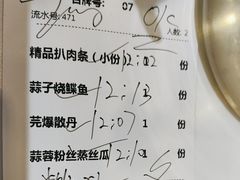 台牌号: 07
流水号: 471
人数: 2
精品扒肉条(小份) 12:02 份
蒜子烧鲽鱼 12:13 份
芫爆散丹 12:07 1 份
蒜蓉粉丝蒸丝瓜 12:10 1 份